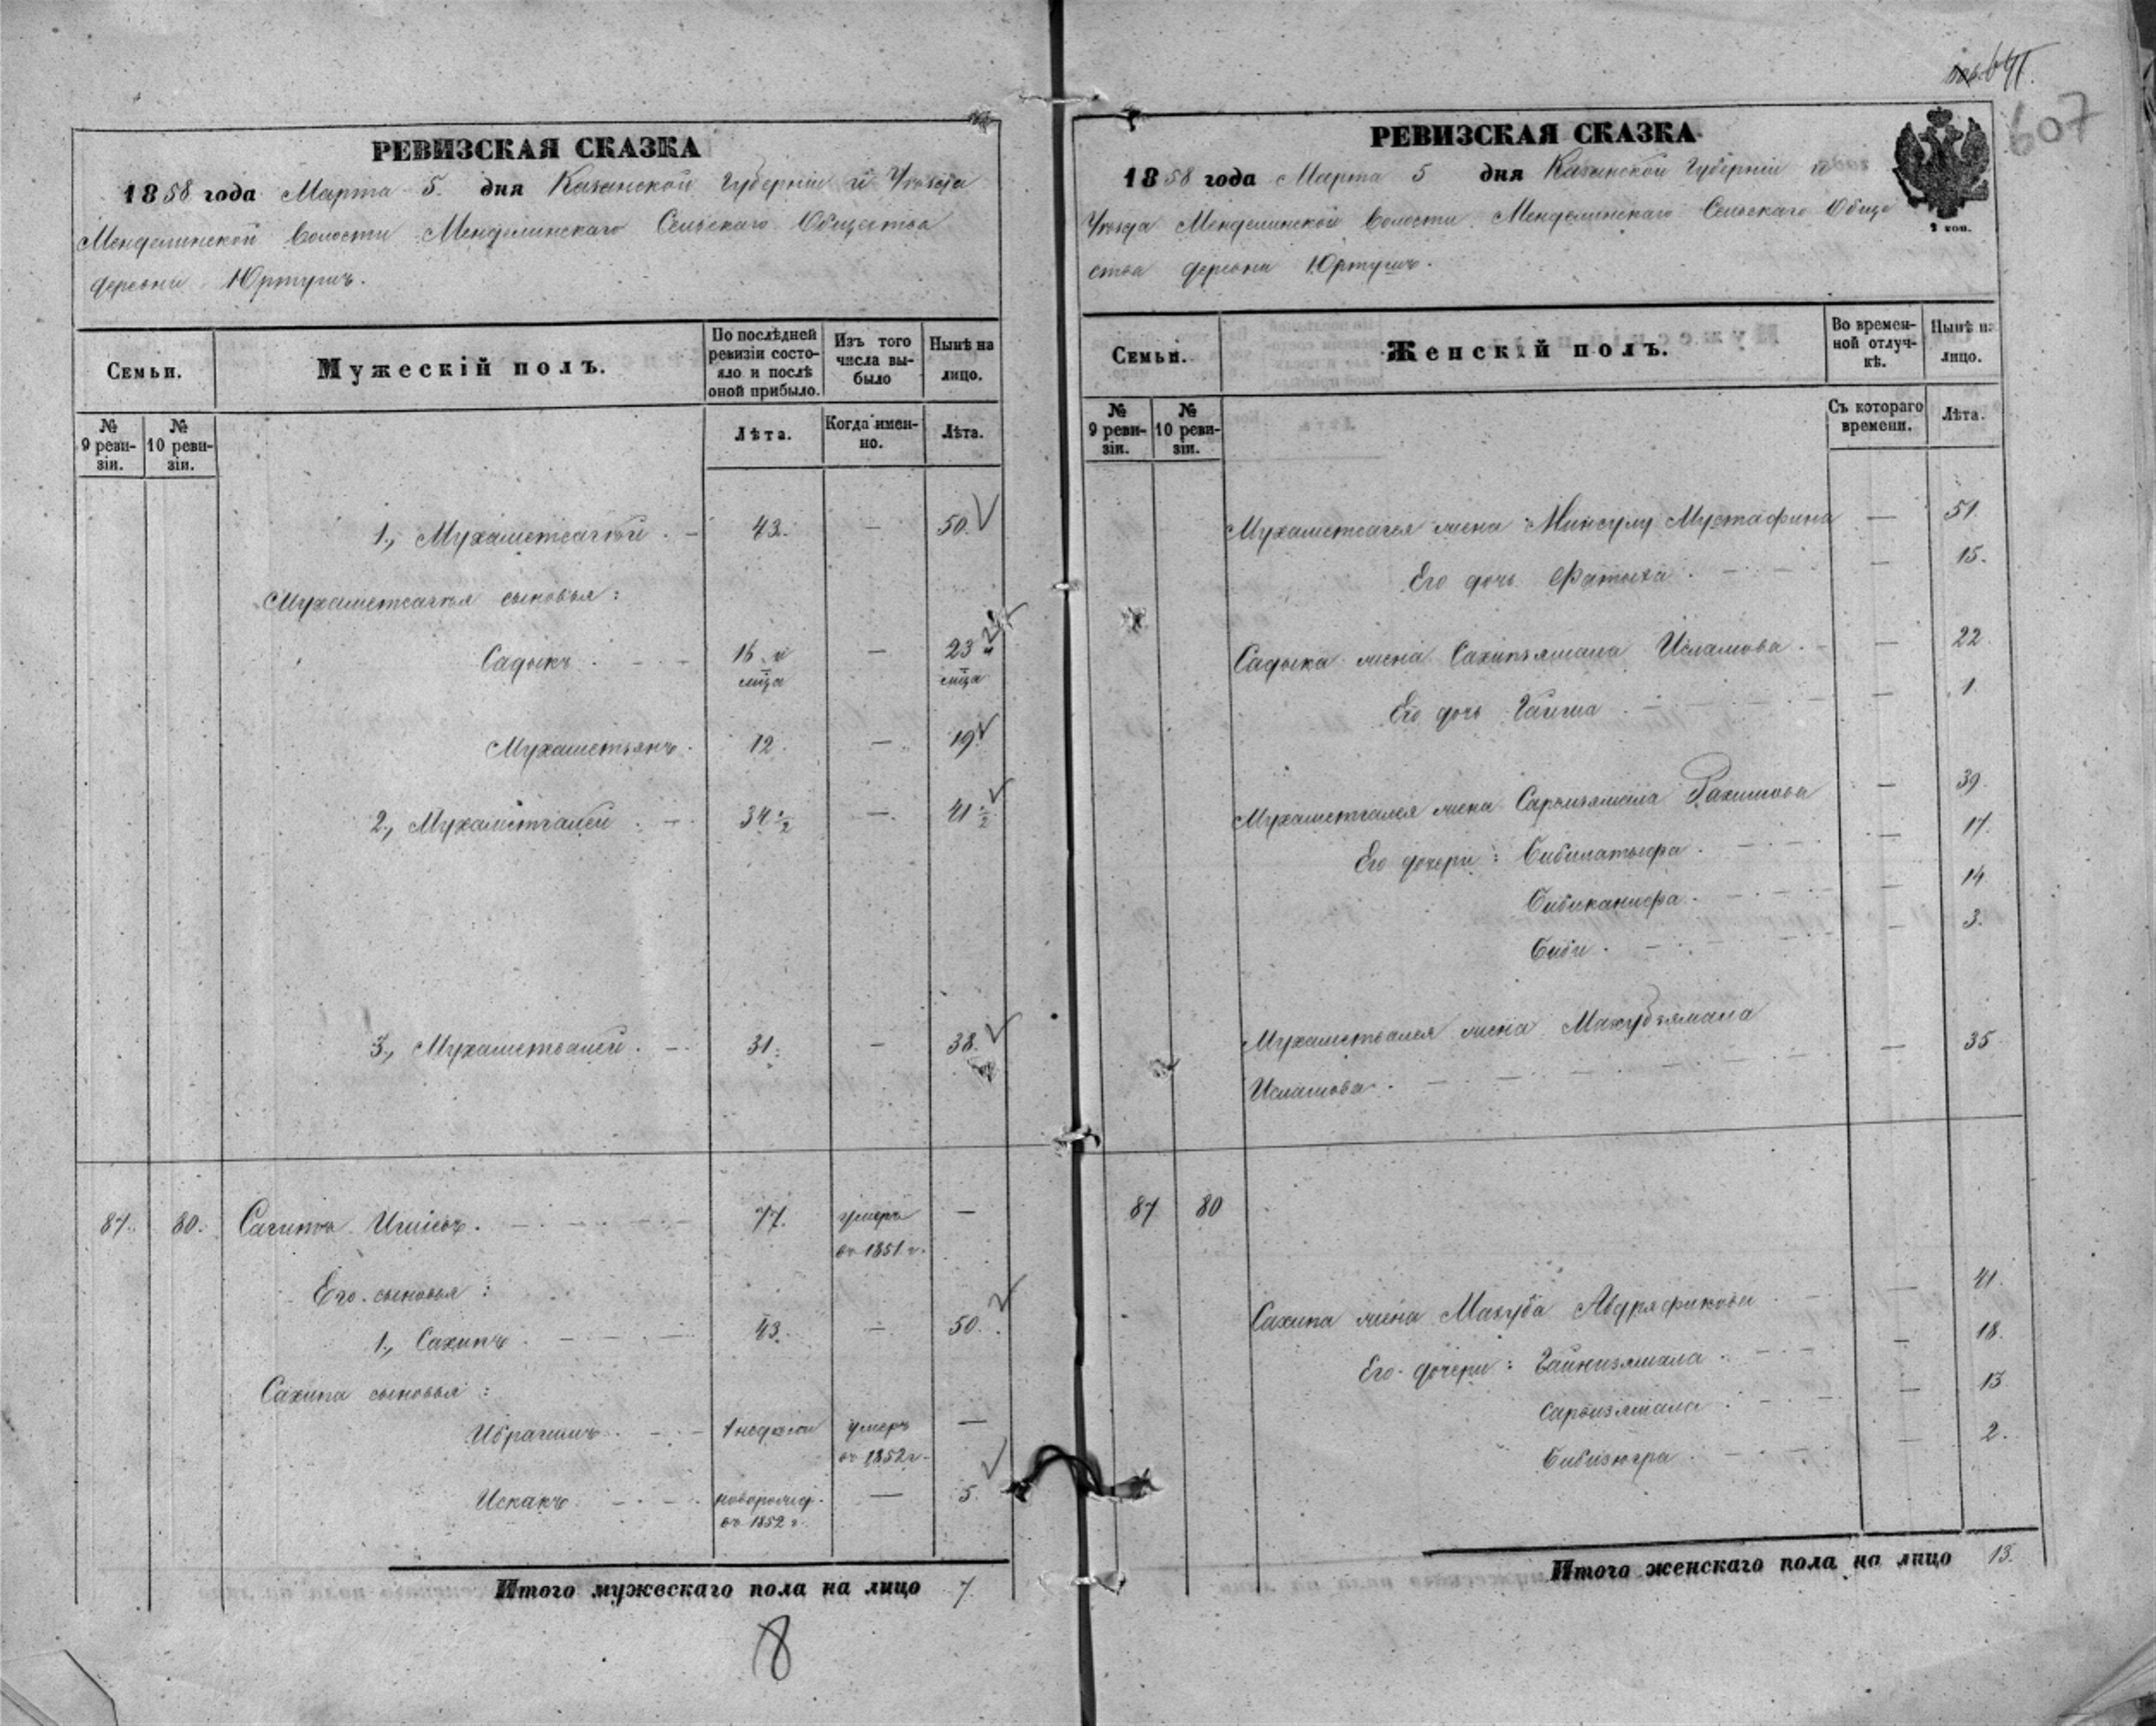 РЕВИЗСКАЯ СКАЗКА
1858 года Марта 5. дня Казанской Губерніи и Уѣзда
Менделинской Волости Менделинскаго Сельскаго Общества
деревни Юртушъ.
Семьи.
Мужескій полъ.
По послѣдней ревизіи состояло и послѣ оной прибыло.
Изъ того числа выбыло
Нынѣ на лицо.
№ 9 ревизіи.
№ 10 ревизіи.
Лѣта.
Когда именно.
Лѣта.
1., Мухаметсагѣй . - 43. — 50.
Мухаметсагѣя сыновья:
Садыкъ . - - - 16 и — 23 и
м̃ца м̃ца
Мухаметьянъ. 12. — 19
2., Мухаметгалей . - 34 ½ — 41 ½
3., Мухаметвалей . - 31. — 38.
87. 80. Сагитъ . - - - 77. умеръ —
въ 1851 г.
Его сыновья :
1., Сахипъ . - - - 43. — 50.
Сахипа сыновья :
Ибрагимъ . - - 1 недели умеръ —
въ 1852 г.
Искакъ . - - - новорожд. — 5.
въ 1852 г.
Итого мужескаго пола на лицо 7.
8
607
РЕВИЗСКАЯ СКАЗКА
1858 года Марта 5 дня Казанской Губерніи и
Уѣзда Менделинской Волости Менделинскаго Сельскаго Обще
ства деревни Юртушъ.
Семьи.
Женскій полъ.
Во временной отлучкѣ.
Нынѣ на лицо.
№ 9 ревизіи.
№ 10 ревизіи.
Съ котораго времени.
Лѣта.
Мухаметсагея жена Минсулу Мустафина — 51.
Его дочь Фатыха . - - — 15.
Садыка жена Сахипзямала Исламова . — 22
Его дочь . - - — 1.
Мухаметгалея жена Сарвизямала Рахимова — 39.
Его дочери : Бибилатыфа . - - — 17.
Бибиханифа . - - — 14
Биби . - - — 3.
Мухаметвалея жена Махубзямала
Исламова . - - - — 35
87 80
Сахипа жена Махуба Абдряфикова — 41.
Его дочери : Гайнизямала . - - — 18.
Сарвизямала . - — 13
Бибизюгра . - - — 2.
Итого женскаго пола на лицо 13.